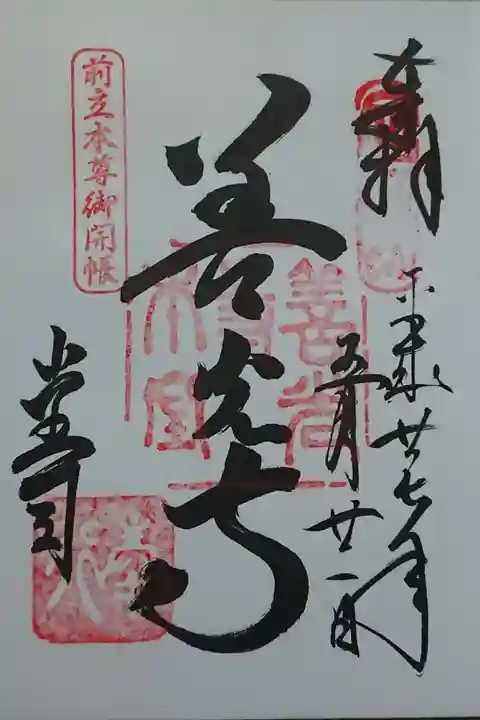 奉拝
平成廿七年
五月廿一日
善光寺
前立本尊御開帳
堂司